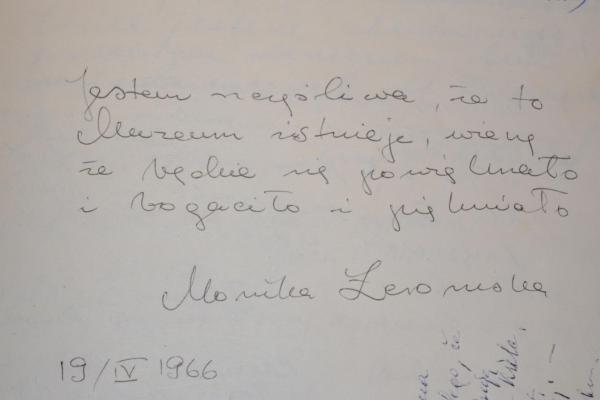 Jestem szczęśliwa, że to
Muzeum istnieje, wierzę
że będzie się powiększało
i bogaciło i piękniało
Monika Żeromska
19/IV 1966